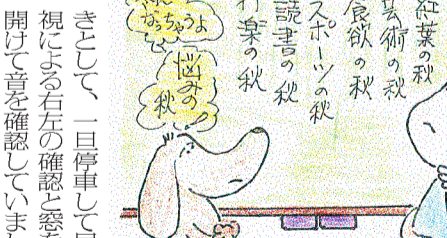 紅葉の秋
芸術の秋
食欲の秋
スポーツの秋
読書の秋
行楽の秋
なっちゃうよ
悩みの
秋
きとして、一旦停車して目
視による右左の確認と窓を
開けて音を確認していまし